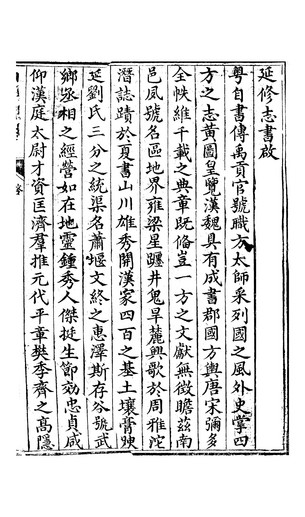 延修志書啟
粵自書傳禹貢官號職方太師采列國之風外史掌四
方之志黃圖皇覽漢魏具有成書郡國方輿唐宋彌多
全帙維千載之典章既備豈一方之文獻無徵瞻茲南
邑夙號名區地界雍梁星躔井鬼旱麓興歌於周雅沱
潛誌蹟於夏書山川雄秀開漢家四百之基土壤膏腴
延劉氏三分之統渠名蕭堰文終之惠澤斯存谷號武
鄉丞相之經營如在地靈鍾秀人傑挺生節効忠貞咸
仰漢庭太尉才資匡濟羣推元代平章樊季齊之高隱